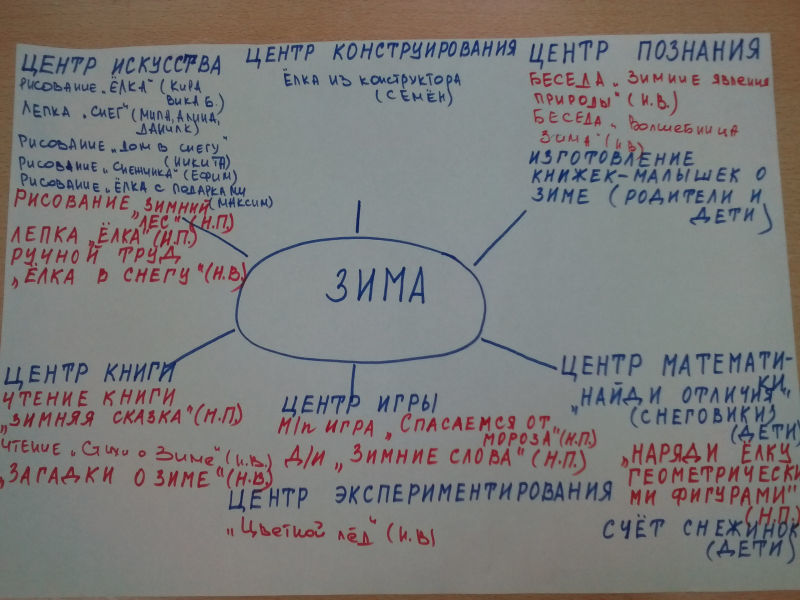 ЦЕНТР ИСКУССТВА
РИСОВАНИЕ „ЁЛКА" (КИРА
ВИКА Б.)
ЛЕПКА „СНЕГ" (МИЛА, АЛИНА,
ДАНИЛК)
РИСОВАНИЕ „ДОМ В СНЕГУ"
(НИКИТА)
РИСОВАНИЕ „СНЕЖИНКА" (ЕФИМ)
РИСОВАНИЕ „ЁЛКА С ПОДАРКАМИ
(МАКСИМ)
РИСОВАНИЕ „ЗИМНИЙ
ЛЕС" (Н.П.)
ЛЕПКА „ЁЛКА" (Н.П.)
РУЧНОЙ ТРУД
„ЁЛКА В СНЕГУ" (Н.В.)
ЦЕНТР КОНСТРУИРОВАНИЯ
ЁЛКА ИЗ КОНСТРУКТОРА
(СЕМЁН)
ЦЕНТР ПОЗНАНИЯ
БЕСЕДА „ЗИМНИЕ ЯВЛЕНИЯ
ПРИРОДЫ" (Н.В.)
БЕСЕДА „ВОЛШЕБНИЦА
ЗИМА" (Н.В)
ИЗГОТОВЛЕНИЕ
КНИЖЕК-МАЛЫШЕК О
ЗИМЕ (РОДИТЕЛИ И
ДЕТИ)
ЗИМА
ЦЕНТР КНИГИ
ЧТЕНИЕ КНИГИ
„ЗИМНЯЯ СКАЗКА" (Н.П.)
ЧТЕНИЕ „СТИХИ О ЗИМЕ" (Н.В.)
„ЗАГАДКИ О ЗИМЕ" (Н.В.)
ЦЕНТР ИГРЫ
М/П ИГРА „СПАСАЕМСЯ ОТ
МОРОЗА" (Н.П.)
Д/И „ЗИМНИЕ СЛОВА" (Н.П.)
ЦЕНТР ЭКСПЕРИМЕНТИРОВАНИЯ
„Цветной лёд" (Н.В)
ЦЕНТР МАТЕМАТИ-
КИ
„НАЙДИ ОТЛИЧИЯ"
(СНЕГОВИКИ)
(ДЕТИ)
„НАРЯДИ ЁЛКУ
ГЕОМЕТРИЧЕСКИ
МИ ФИГУРАМИ"
(Н.П.)
СЧЁТ СНЕЖИНОК
(ДЕТИ)